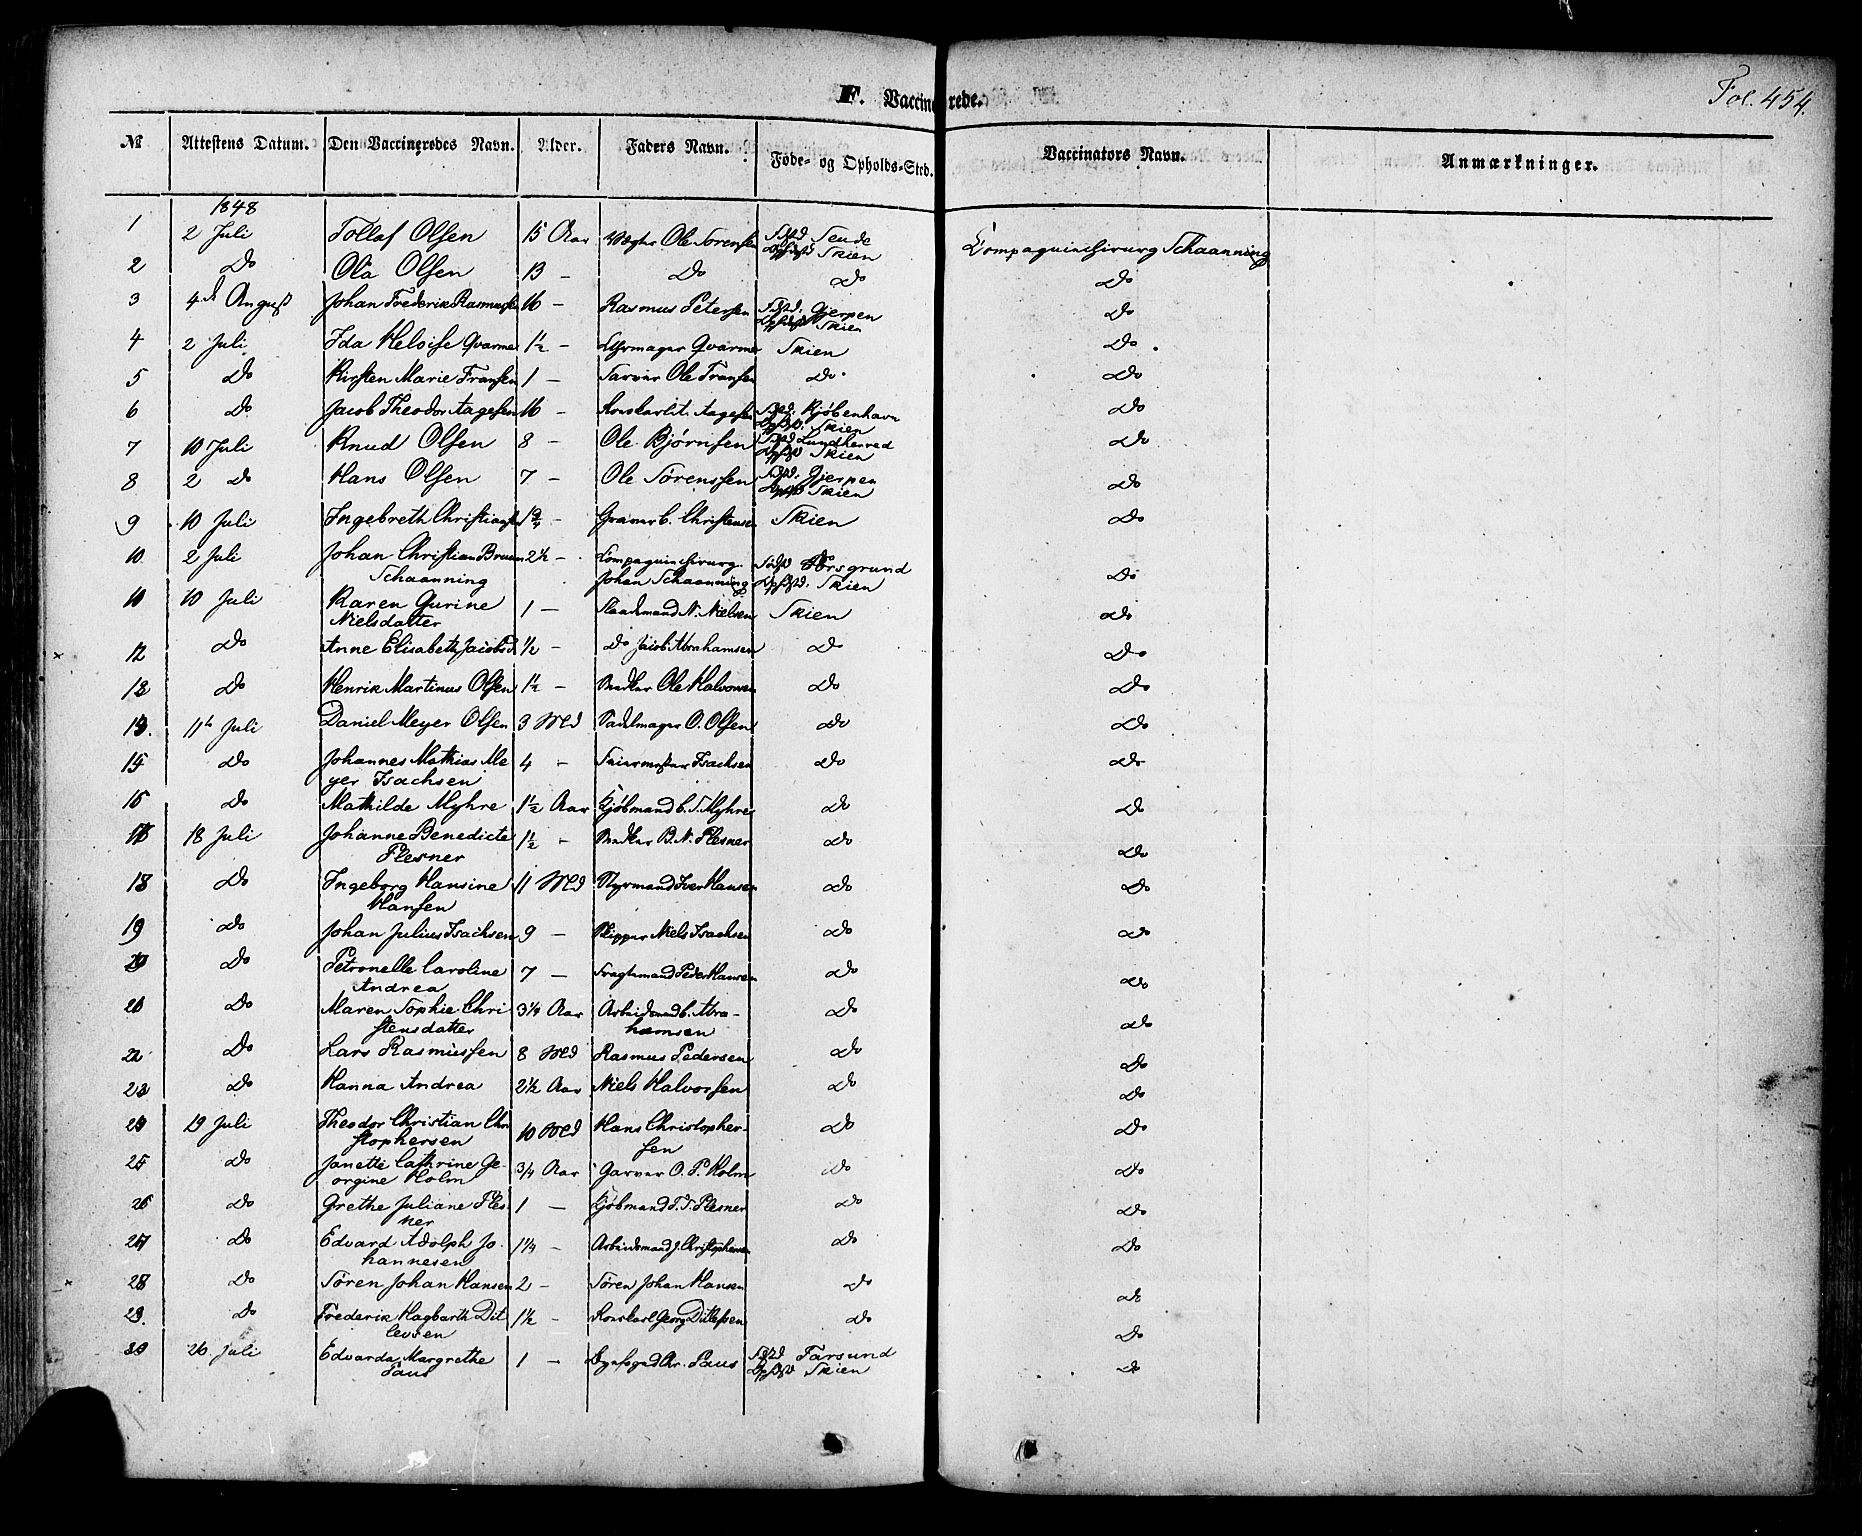 F. Vaccinerede.
Fol. 454.
№ Attestens Datum. Den Vaccineredes Navn. Alder. Faders Navn. Føde- og Opholds-Sted. Vaccinators Navn. Anmærkninger.
1848
1 2 Juli Tollof Olsen 15 Aar Ole Sørensen Fdstd
Opholdst Skien Compagniechirurg Schaanning
2 Do Ola Olsen 13 - Do Do Do
3 4de August Johan Frederik Rasmussen 16 - Rasmus Petersen Fdstd. Gjerpen
Opholdst Skien Do
4 2 Juli Ida Heloise Qvarme 1½ - Uhrmager Qvarme Skien Do
5 Do Kirsten Marie Fransen 1 - Farver Ole Fransen Do Do
6 Do Jacob Theodor Aagesen 16 - Aagesen Fdstd. Kjøbenhavn
Opholdst. Skien Do
7 10 Juli Knud Olsen 8 - Ole Bjørnsen Fdstd Lundherred
Opholdst Skien Do
8 2 Do Hans Olsen 7 - Ole Sørenssen Fdstd. Gjerpen
Opholdst Skien Do
9 10 Juli Ingebreth Christiansen - C. Christensen Skien Do
10. 2 Juli Johan Christian Bruun 2½ - Compagniechirurg. Fdstd Porsgrund
Schaanning Johan Schaanning Opholdst. Skien Do
11 10 Juli Karen Gurine 1 - N. Nielsen Skien Do
Nielsdatter
12 Do Anne Elisabeth Jacobsd ½ - do Jacob Abrahamsen Do Do
13 Do Henrik Martinus Olsen 1½ - Snedker Ole Halvorsen Do Do
14. 11te Juli Daniel Meyer Olsen 3 Md Sadelmager O. Olsen Do Do
15 Do Johannes Mathias Me 4 - Isachsen Do Do
yer Isachsen
16 Do Mathilde Myhre 1½ Aar Kjøbmand C. S. Myhre Do Do
17 18 Juli Johanne Benedicte 1½ - Snedker B. N. Plesner Do Do
Plesner
18 Do Ingeborg Hansine 11 Md Styrmand Iver Hansen Do Do
Hansen
19 Do Johan Julius Isachsen 9 - Skipper Niels Isachsen Do Do
20 Do Petronelle Caroline 7 - Fragtemand Peder Hansen Do Do
Andrea
21 Do Maren Sophie Chri 3¼ Aar Arbeidsmand C. Abra-
stensdatter hamsen Do Do
22 Do Lars Rasmussen 8 Md Rasmus Pedersen Do Do
23 Do Hanna Andrea 2½ Aar Niels Halvorsen Do Do
24 19 Juli Theodor Christian Chri 10 Md Hans Christopher- Do Do
stophersen sen
25 Do Janette Cathrine Ge- 3/4 Aar Garver O. P. Holm Do Do
orgine Holm
26 Do Grethe Juliane Ples- 1 - Kjøbmand F. F. Plesner Do Do
ner
27 Do Edvard Adolph Jo- 1¼ - Arbeidsmand J. Christophersen Do Do
hannesen
28 Do Søren Johan Hansen 2 - Søren Johan Hansen Do Do
29. Do Frederik Hagbarth Dit 1½ - Georg Ditlefsen Do Do
levsen
30 26 Juli Edvarda Margrethe 1 - Byefoged Chr. Paus Fdstd Farsund
Paus Opholdst Skien Do